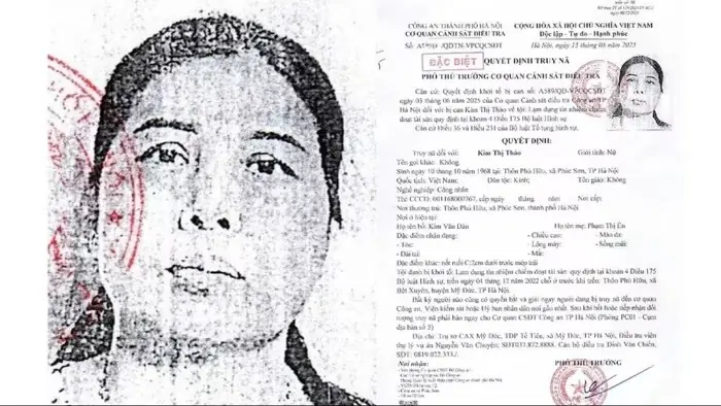 CÔNG AN THÀNH PHỐ HÀ NỘI
CƠ QUAN CẢNH SÁT ĐIỀU TRA
CỘNG HÒA XÃ HỘI CHỦ NGHĨA VIỆT NAM
Độc lập - Tự do - Hạnh phúc
/QĐTN-VPCQCSĐT
Hà Nội, ngày 06 năm 2025
ĐẶC BIỆT
QUYẾT ĐỊNH TRUY NÃ
PHÓ THỦ TRƯỞNG CƠ QUAN CẢNH SÁT ĐIỀU TRA
Căn cứ Quyết định khởi tố bị can số: A589/QĐ-VPCQCSĐT
ngày 05 tháng 06 năm 2025 của Cơ quan Cảnh sát điều tra Công an TP
Hà Nội đối với bị can Kim Thị Thảo về tội: Lạm dụng tín nhiệm chiếm
đoạt tài sản quy định tại khoản 4 Điều 175 Bộ luật Hình sự
Căn cứ Điều 36 và Điều 231 của Bộ luật Tố tụng hình sự.
QUYẾT ĐỊNH:
Truy nã đối với: Kim Thị Thảo Giới tính: Nữ
Tên gọi khác: Không.
Sinh ngày 10 tháng 10 năm 1968 tại: Thôn Phú Hữu, xã Phúc Sơn, TP Hà Nội
Quốc tịch: Việt Nam; Dân tộc: Kinh; Tôn giáo: Không
Nghề nghiệp: Công nhân
Thẻ CCCD: cấp ngày tháng năm Nơi cấp:
Nơi thường trú: Thôn Phú Hữu, xã Phúc Sơn, thành phố Hà Nội
Nơi ở hiện tại:
Họ tên bố: Kim Văn Dân Họ tên mẹ: Phạm Thị Én
Đặc điểm nhận dạng: - Chiều cao: - Màu da:
- Tóc: - Lông mày: - Sống mũi:
- Dái tai: - Mắt:
Đặc điểm khác: nốt ruồi dưới trước mép trái
Tội danh bị khởi tố: Lạm dụng tín nhiệm chiếm đoạt tài sản quy định tại khoản 4 Điều 175
Bộ luật Hình sự, trốn ngày 01 tháng 12 năm 2022 chỗ ở trước khi trốn: Thôn Phú Hữu, xã
Bột Xuyên, huyện Mỹ Đức, TP Hà Nội.
Bất kỳ người nào cũng có quyền bắt và giải ngay người đang bị truy nã đến cơ quan
Công an, Viện kiểm sát hoặc Uỷ ban nhân dân nơi gần nhất. Sau khi bắt hoặc tiếp nhận đối
tượng truy nã phải báo ngay cho Cơ quan CSĐT Công an TP Hà Nội (Phòng PC01 - Cụm
địa bàn số 5)
Địa chỉ: Trụ sở CAX Mỹ Đức, TDP Tế Tiêu, xã Mỹ Đức, TP Hà Nội, Điều tra viên
thụ lý vụ án Nguyễn Văn Chuyên; Cán bộ điều tra Đinh Văn Chiến,
Nơi nhận:
PHÓ THỦ TRƯỞNG